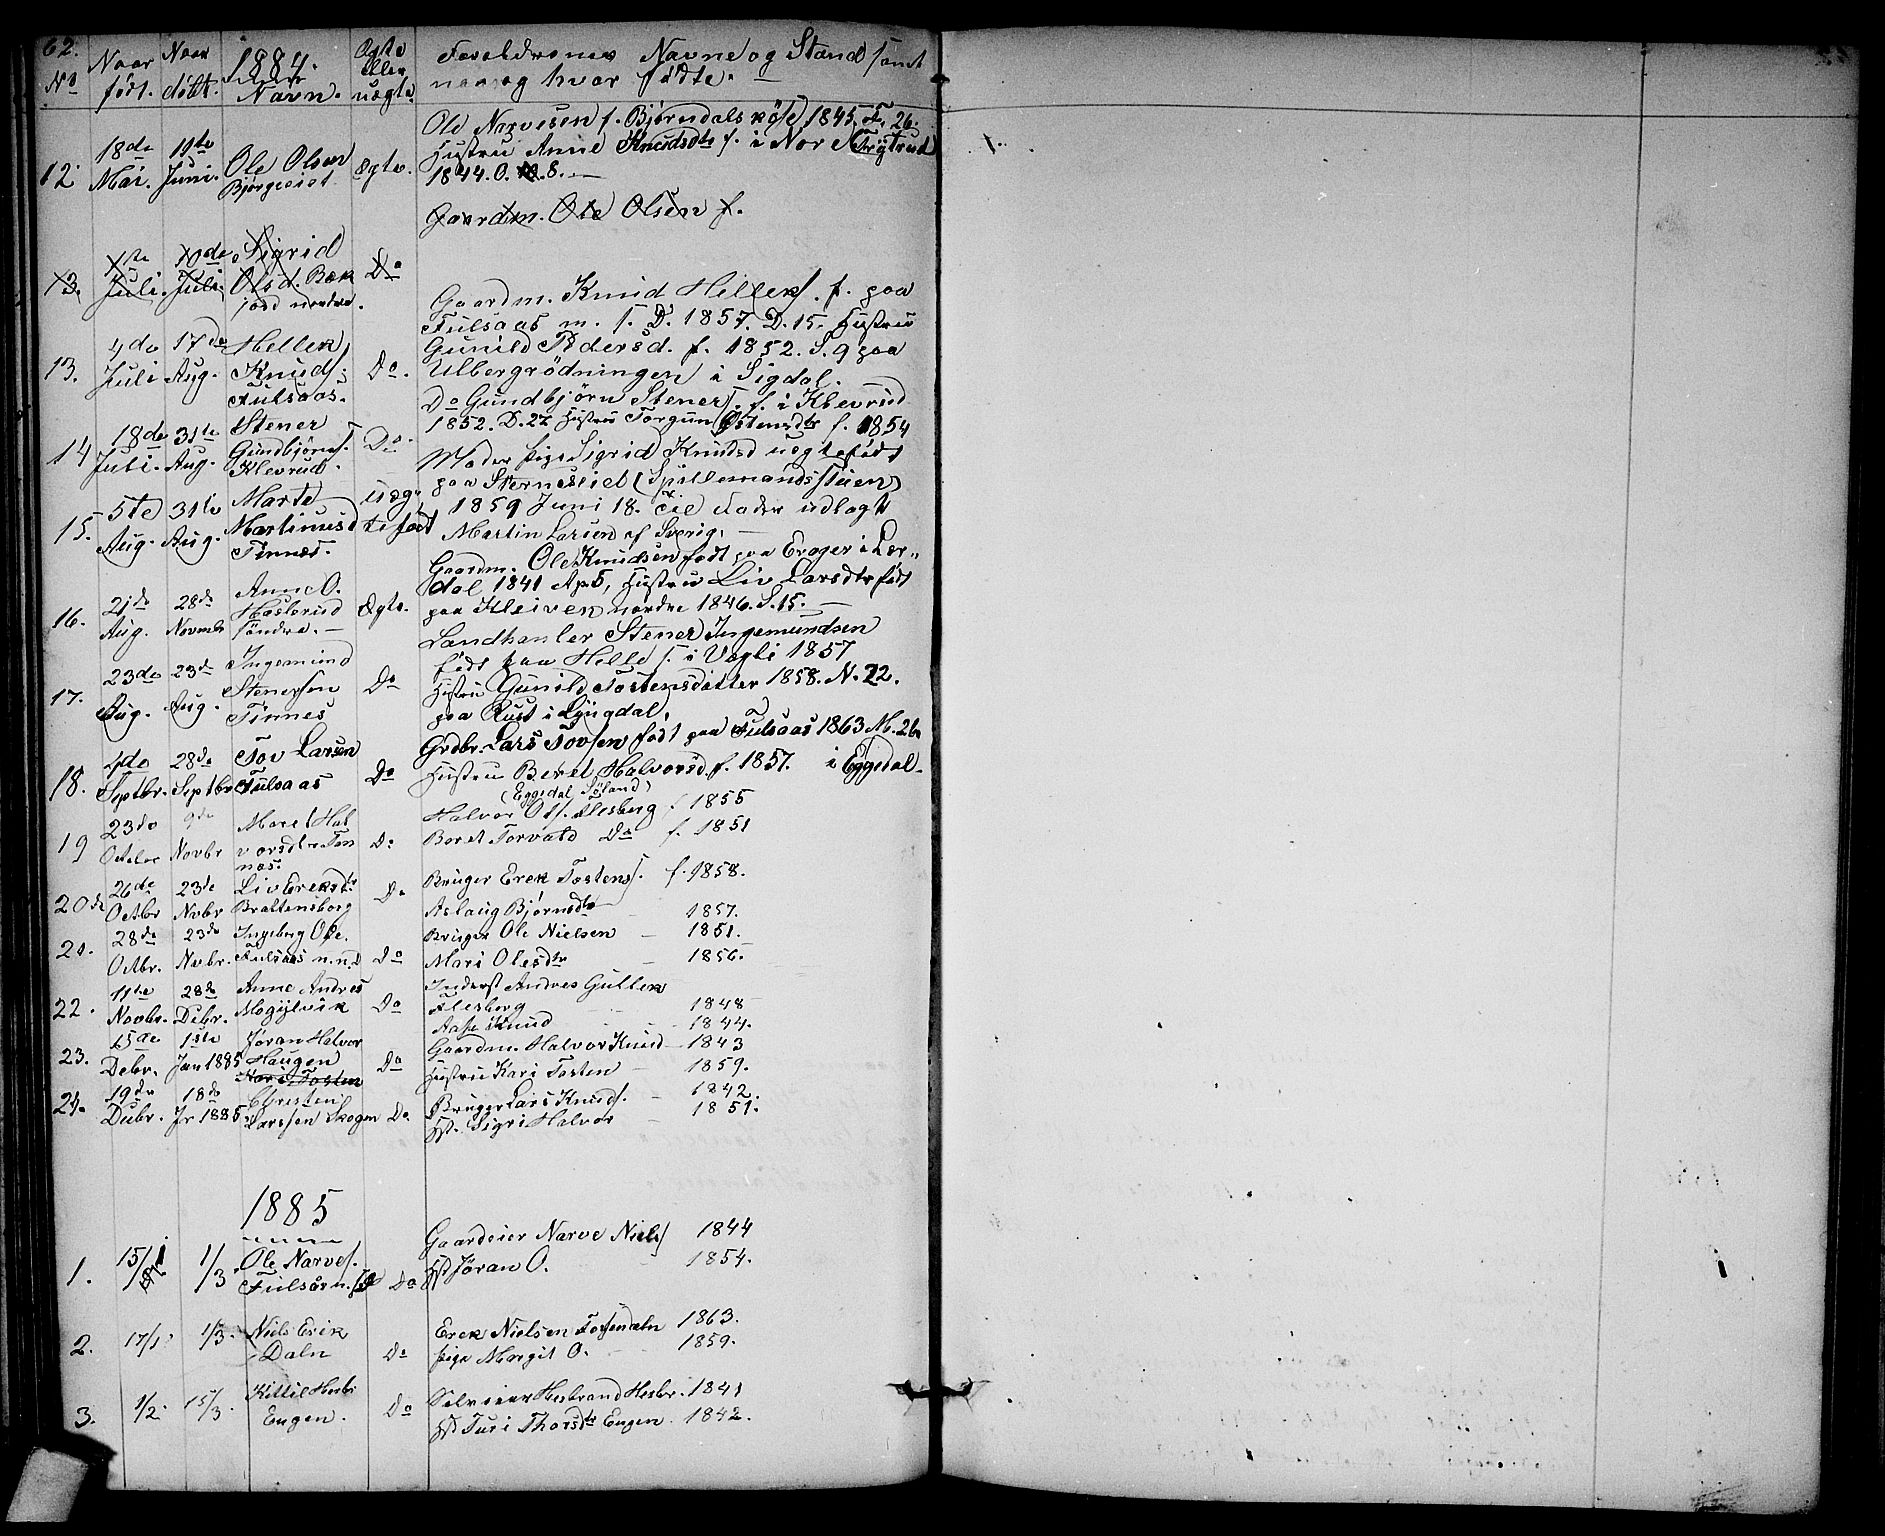 62.
No
Naar født.
Naar døbt.
1884.
Navn.
Ægte eller uægte.
Foreldrenes Navne og Stand samt
naar og hvor fødte.
12
18de Mai.
19te Juni.
Ole Olsen
Bjørgeeiet
Ægte.
Ole Narvesen f. Bjørndalskøse 1845. F. 26.
Hustru Anne Knudsdtr f. i Nore Frygtrud
1844. O. 8.
Gaardm. Ole Olsen f.
13.
1ste Juli.
10de Juli.
Sigrid
Olsd. Bæk
jord nordre.
Do
13.
4de Juli
17de Aug.
Hellek
Knuds.
Fulsaas.
Do.
Gaardm. Knud Helleks. f. paa
Fulsaas m. f. D. 1857. D. 15. Hustru
Gunild Pedersd. f. 1852. S. 9 paa
Ulbergrödningen i Sigdal.
14
18de Juli.
31te Aug.
Stener
Gundbjørns.
Klevrud.
Do.
Do Gundbjörn Steners. f. i Klevrud
1852. D. 22 Hustru Torgun Østensdtr f. 1854
15.
5te Aug.
31te Aug.
Marte
Martinusd
Tinnæs.
uægtefødt
Moder pige Sigrid Knudsd uegtefödt
paa Sterneseiet (Spillemandsstuen)
1859 Juni 18. Til Fader udlagt
Martin Larsen af Sverig.
16.
21de Aug.
28de Novmb
Anne O.
Haslerud
söndre.
Ægte.
Gaardm. Ole Knudsen født paa Erager i Lær-
dal 1841 Ap 5, Hustru Liv Larsdtr født
paa Kleiven nordre 1846. S. 15.
17.
23de Aug.
23de Aug.
Ingemund
Stenersen
Tinnes
Do
Landhanler Stener Ingemundsen
født paa Helle s. i Vegli 1857
Hustru Gunild Tostensdatter 1858. N. 22.
paa Rust i Lyngdal.
18.
4de Septbr.
28de Septbr
Tov Larsen
Fulsaas
Do
Grdbr. Lars Tovsen født paa Fulsaas 1863 M. 26
Hustru Beret Halvorsd. f. 1857. i Eggedal.
(Eggedal Söland)
19
23de Octbr
9de Novbr
Maret Hal
vorsdtr Tin
næs.
Do
Halvor Ols. Flesberg f 1855
Beret Torvald Do f. 1851
20de
26de Octbr
23de Nvbr
Liv Ereksdtr
Brattensborg
Do
Bruger Erek Tostens. f. 1858.
Aslaug Bjørnsdtr 1857.
21.
28de Octbr.
23de Nvbr.
Ingeborg Ole.
Fulsaas n. n.
Do
Bruger Ole Nielsen 1851.
Mari Olesdtr 1856.
22.
11te Novbr.
28de Debr.
Anne Andres
Mogylvik
Do
Inderst Andres Gullek
Flesberg 1848
Aase Knud 1844.
23.
15de Debr.
1ste Jan 1885
Jøran Halvor
Haugen
Kari Tosten
Do
Gaardm. Halvor Knud 1843
Hustru Kari Tosten 1859.
24.
19de Debr.
18de Jr 1885
Christen
Larssen Skogen
Do
Bruger Lars Knuds. 1842.
Hst. Sigri Halvor 1851.
1885
1.
15/1
1/3.
Ole Narves.
Fulsås n.
Do
Gaardeier Narve Niels 1844
Hst Jöran O. 1854.
2.
17/1
1/3.
Niels Erik
Daln
Do
Erek Nielsen 1863.
pige Margit O. 1859.
3.
1/2.
15/3.
Kittil Herbr
Eugen.
Do
Selveier Herbrand Herbr. 1841
Hst Turi Thorsdtr Eugen 1842.